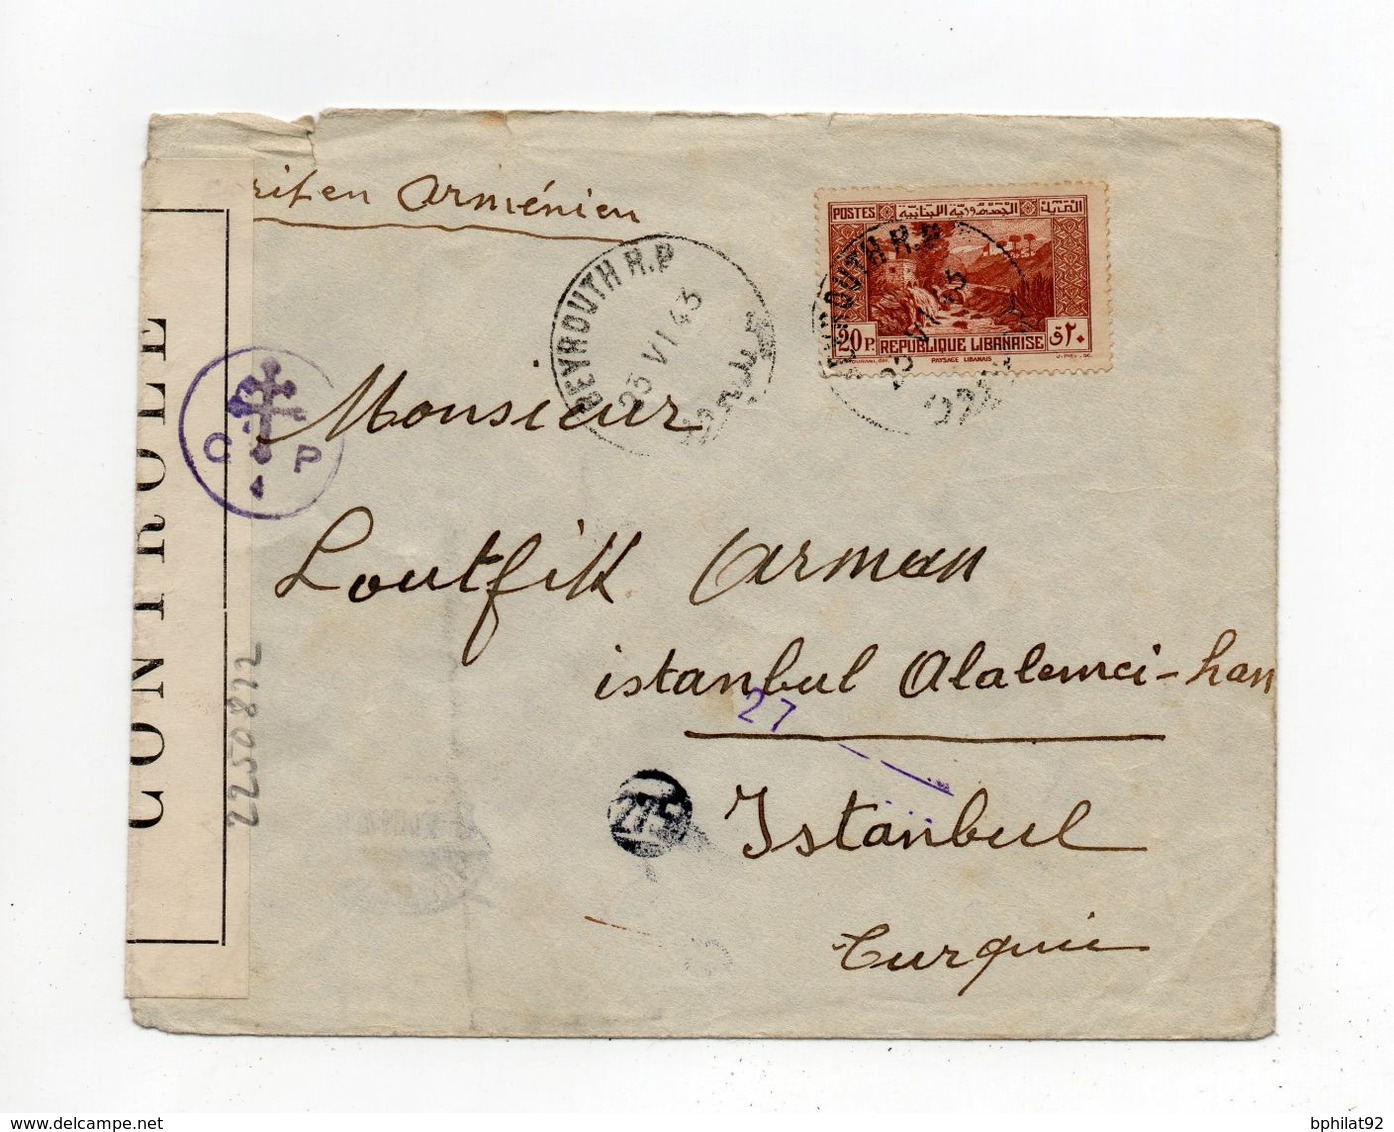 rit en Arménien
POSTES الجمهورية اللبنانية
20 P. REPUBLIQUE LIBANAISE ٢٠ ق
PAYSAGE LIBANAIS
BEYROUTH R.P
25 VI 43
BEYROUTH R.P
CONTROLE
C P
4
Monsieur
Loutfik Arman
istanbul Alalemci-han
27
275
Istanbul
Turquie
2250822
bphilat92